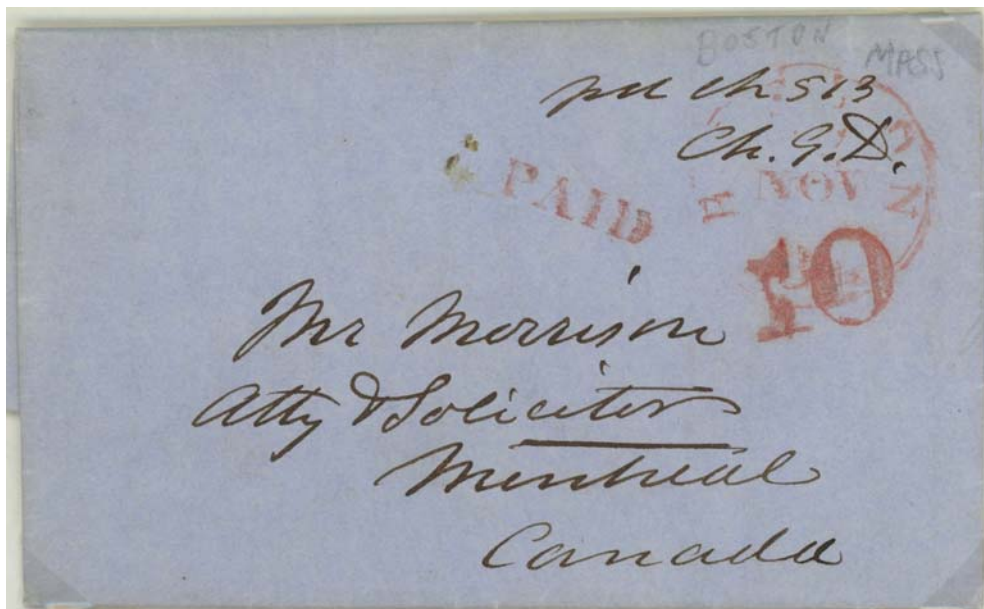 BOSTON MASS
pd ch 513
Ch. G. D.
PAID
NOV
10
Mr Morrison
Atty & Solicitor
Montreal
Canada